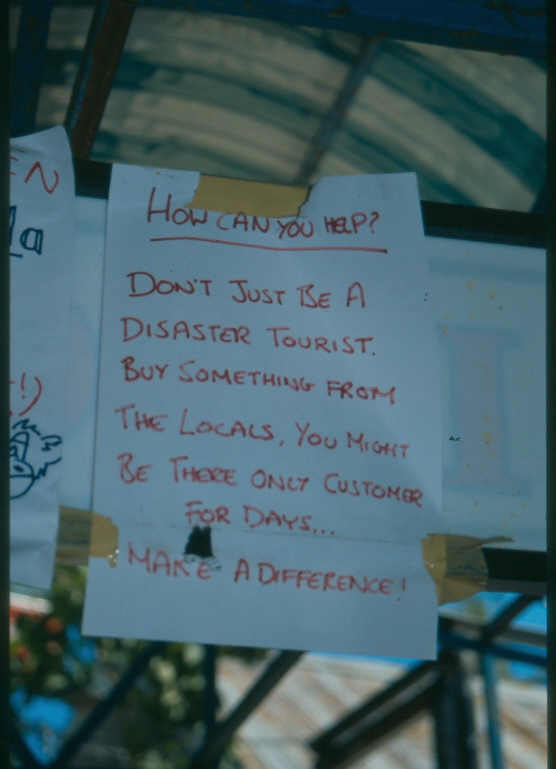 How can you help?
Don't just be a
disaster tourist.
Buy something from
the locals, you might
be there only customer
for days...
Make a difference!
EN
la
!)